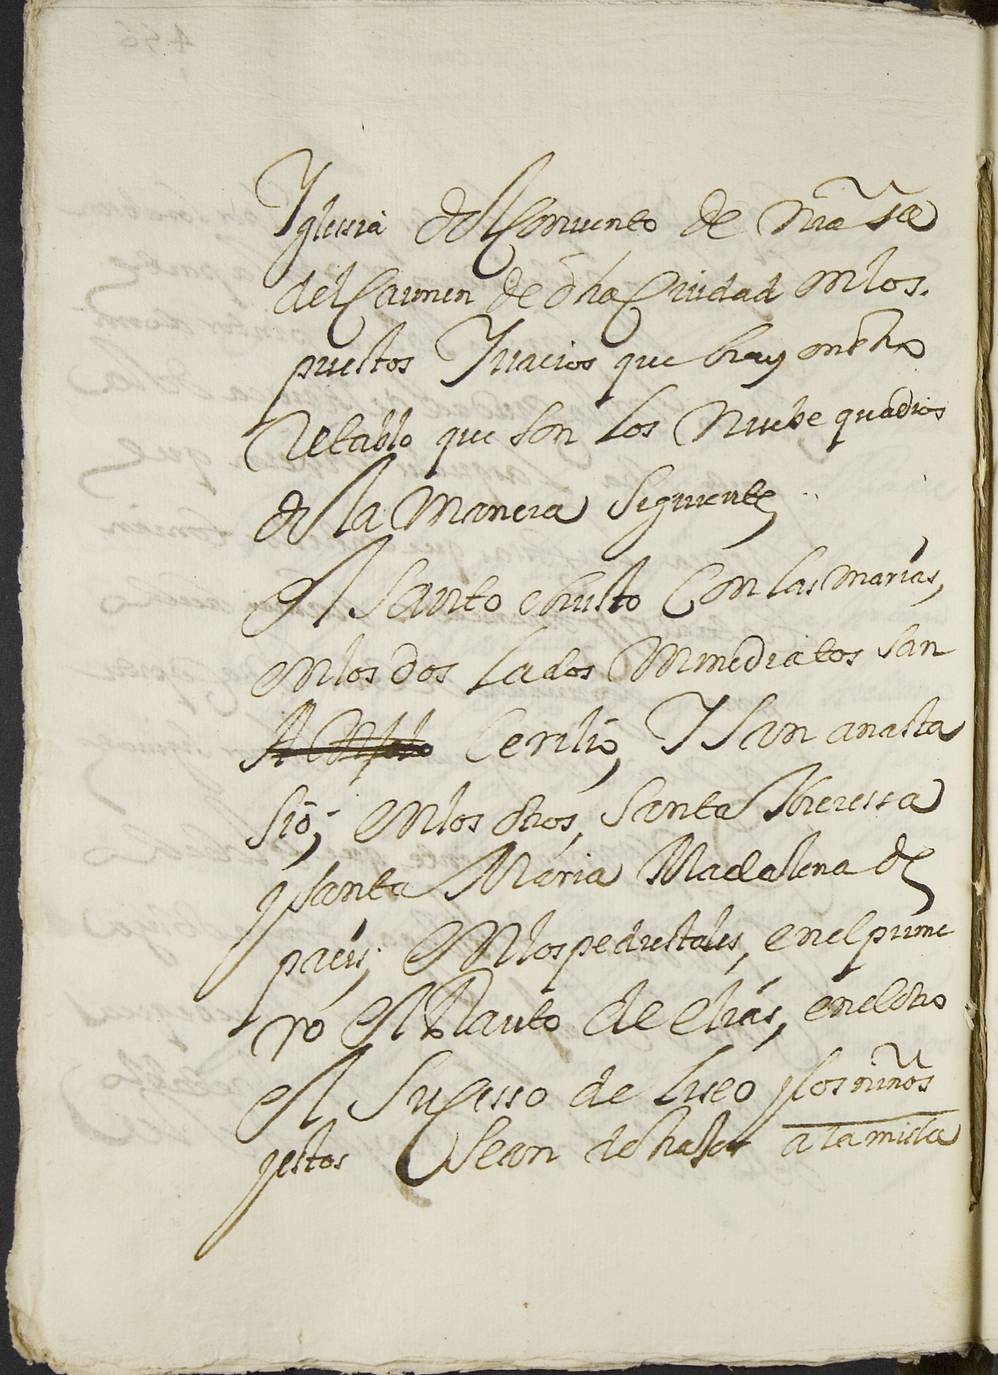 Yglesia del Convento de nra Sra
del Carmen de dha Ciudad en los.
puestos Vacios que hay en dho
Retablo que son los Nuebe quadros
de la Manera Siguiente
El Santo christo Con las marias,
en los dos lados Inmediatos San
Cerilio, Y San anasta
sio; en los otros, Santa Theressa
y santa Maria Madalena de
pacis; en los pedestales, en el prime
ro el Rauto de elias, en el otro
el Sucesso de liseo y los niños
y estos Sean de haser a la mista